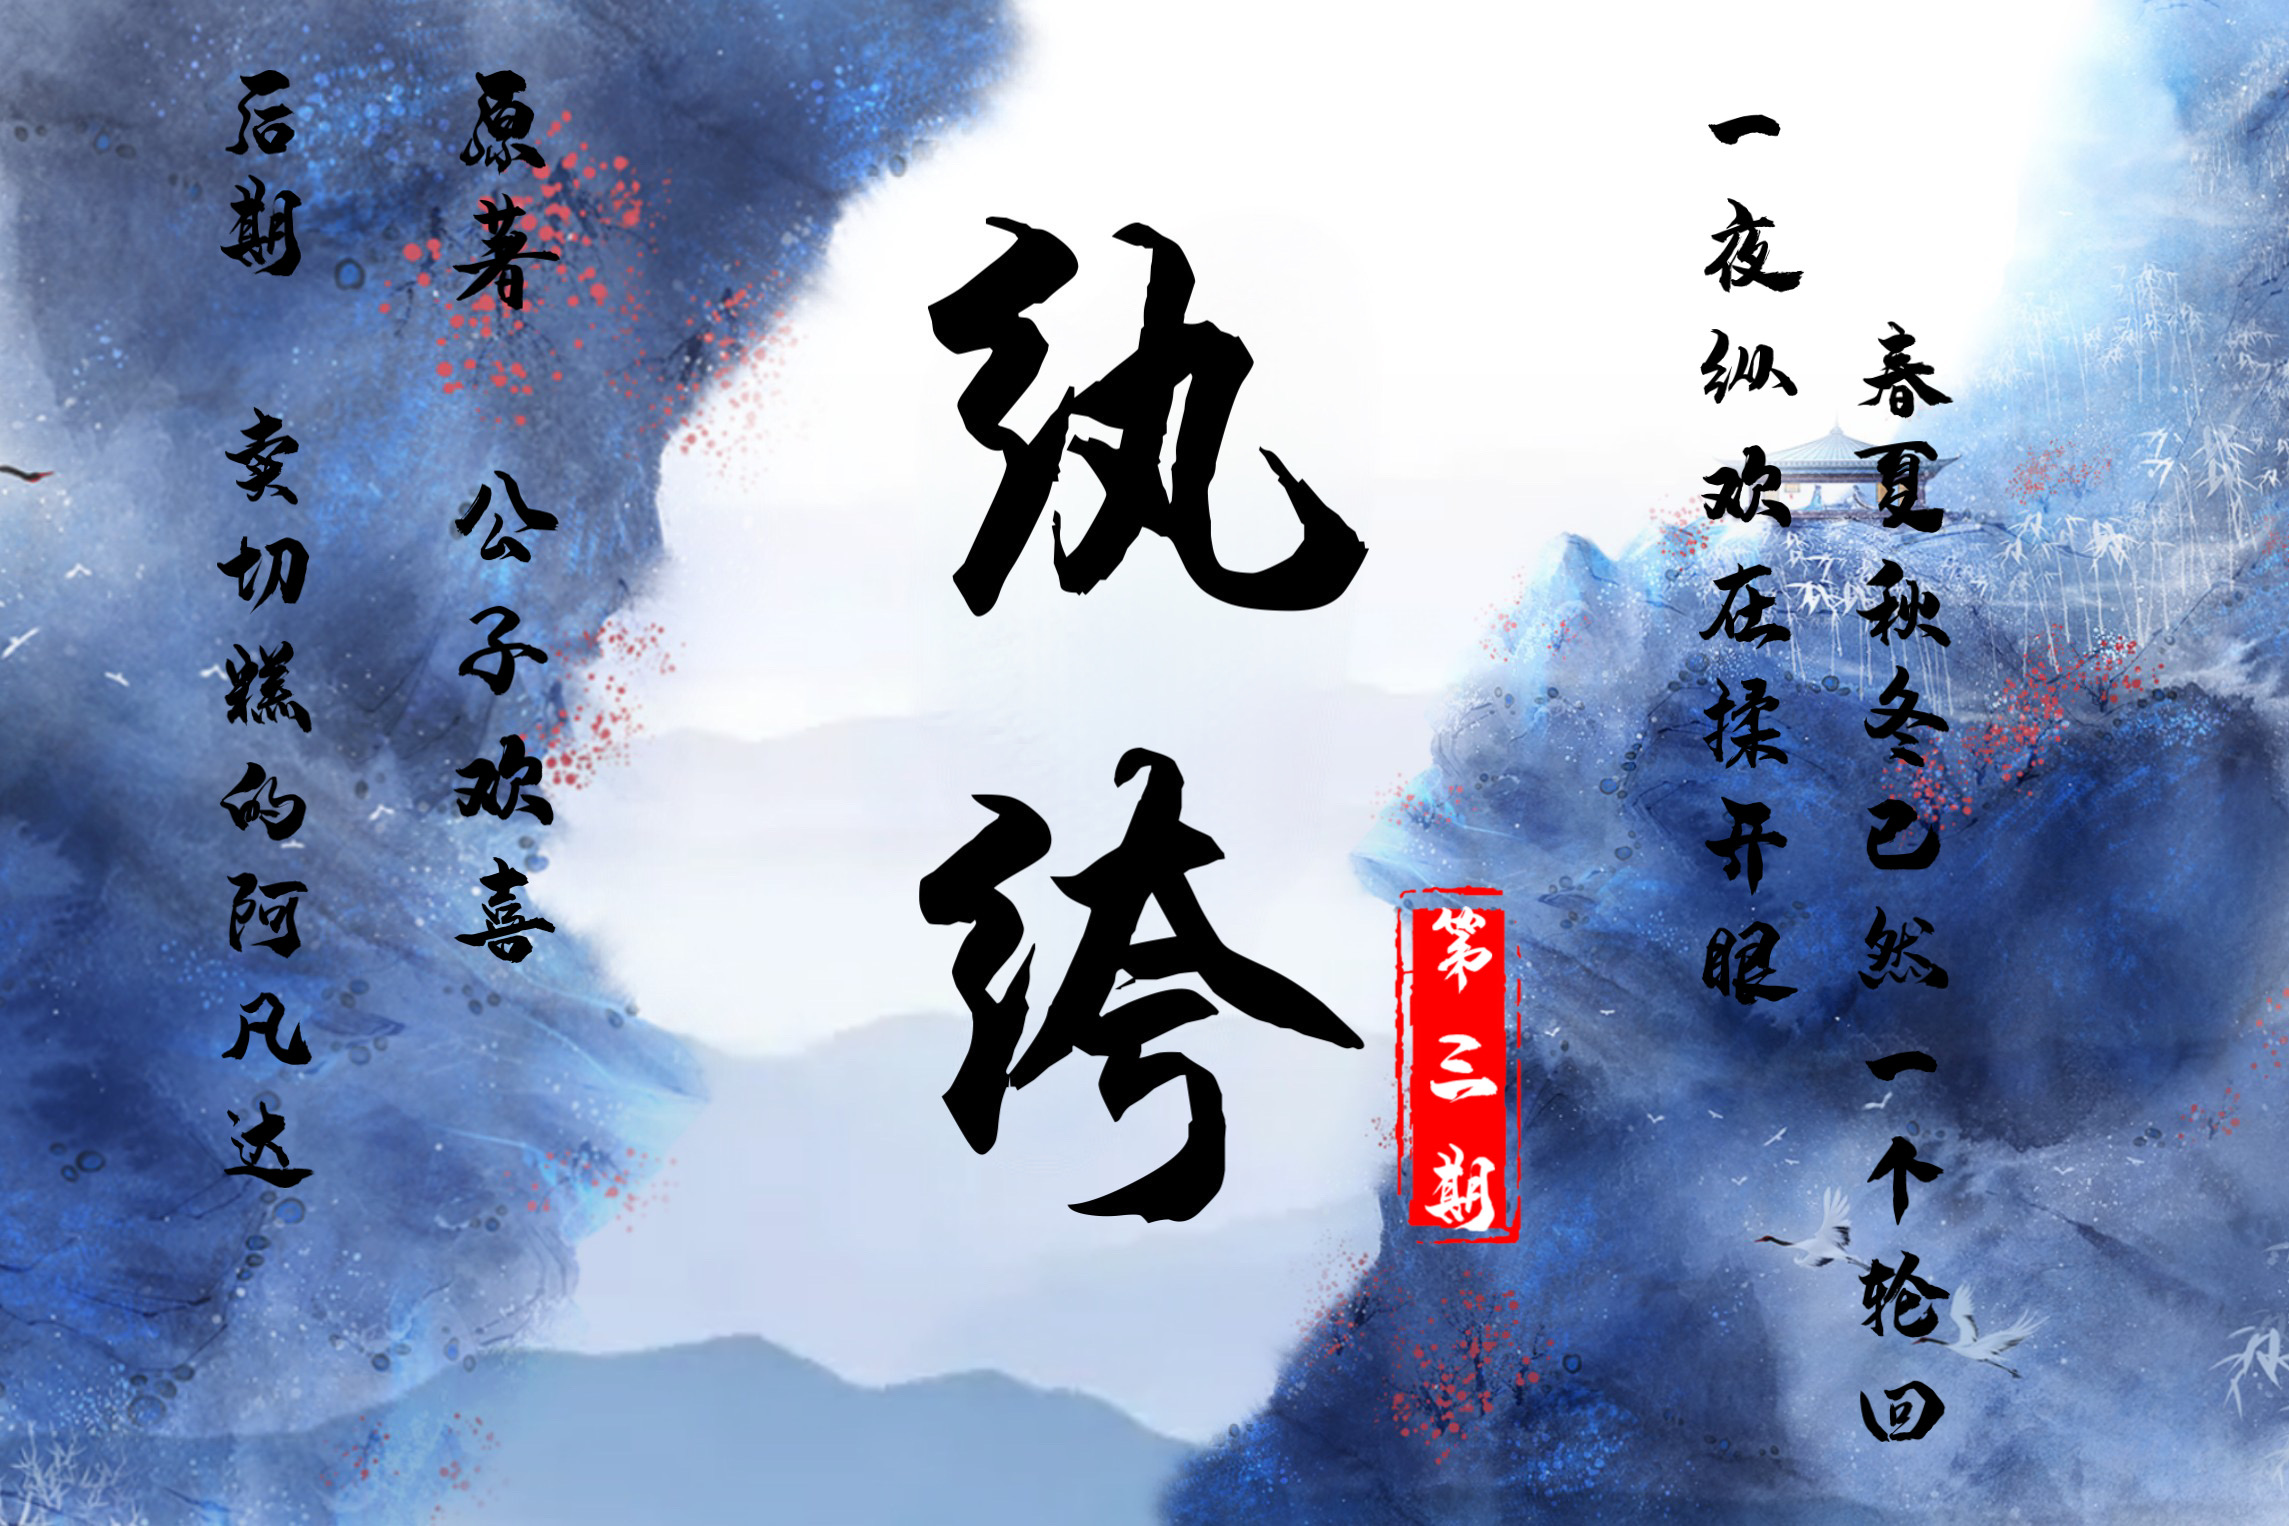 春夏秋冬已然一个轮回
一夜纵欢在揉开眼
第三期
纨绔
原著 公子欢喜
后期 卖切糕的阿凡达